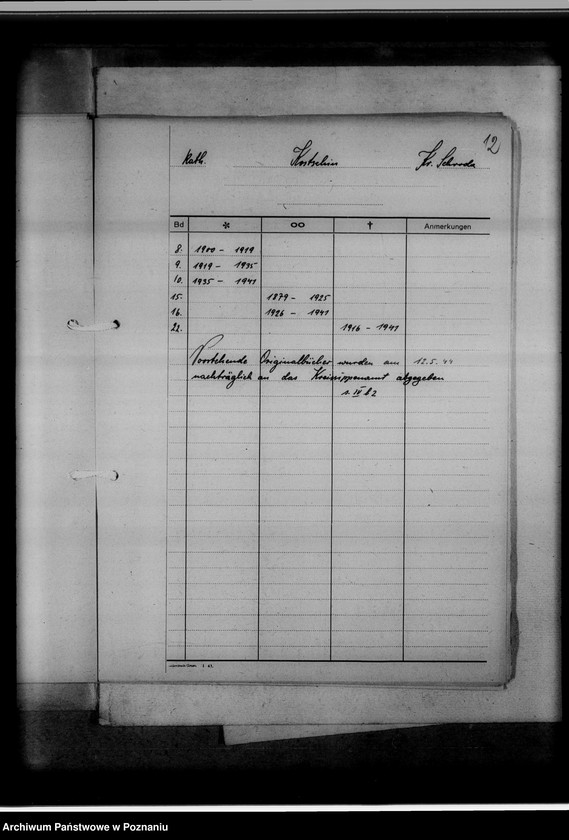 12
Kath. Kostschin Kr. Schroda
Bd * ∞ † Anmerkungen
8. 1900 - 1919
9. 1919 - 1935
10. 1935 - 1941
15. 1879 - 1925
16. 1926 - 1941
22. 1916 - 1941
Vorstehende Originalbücher wurden am 12.5.44
nachträglich an das Kreissippenamt abgegeben
s. IV b 2
Archiwum Państwowe w Poznaniu